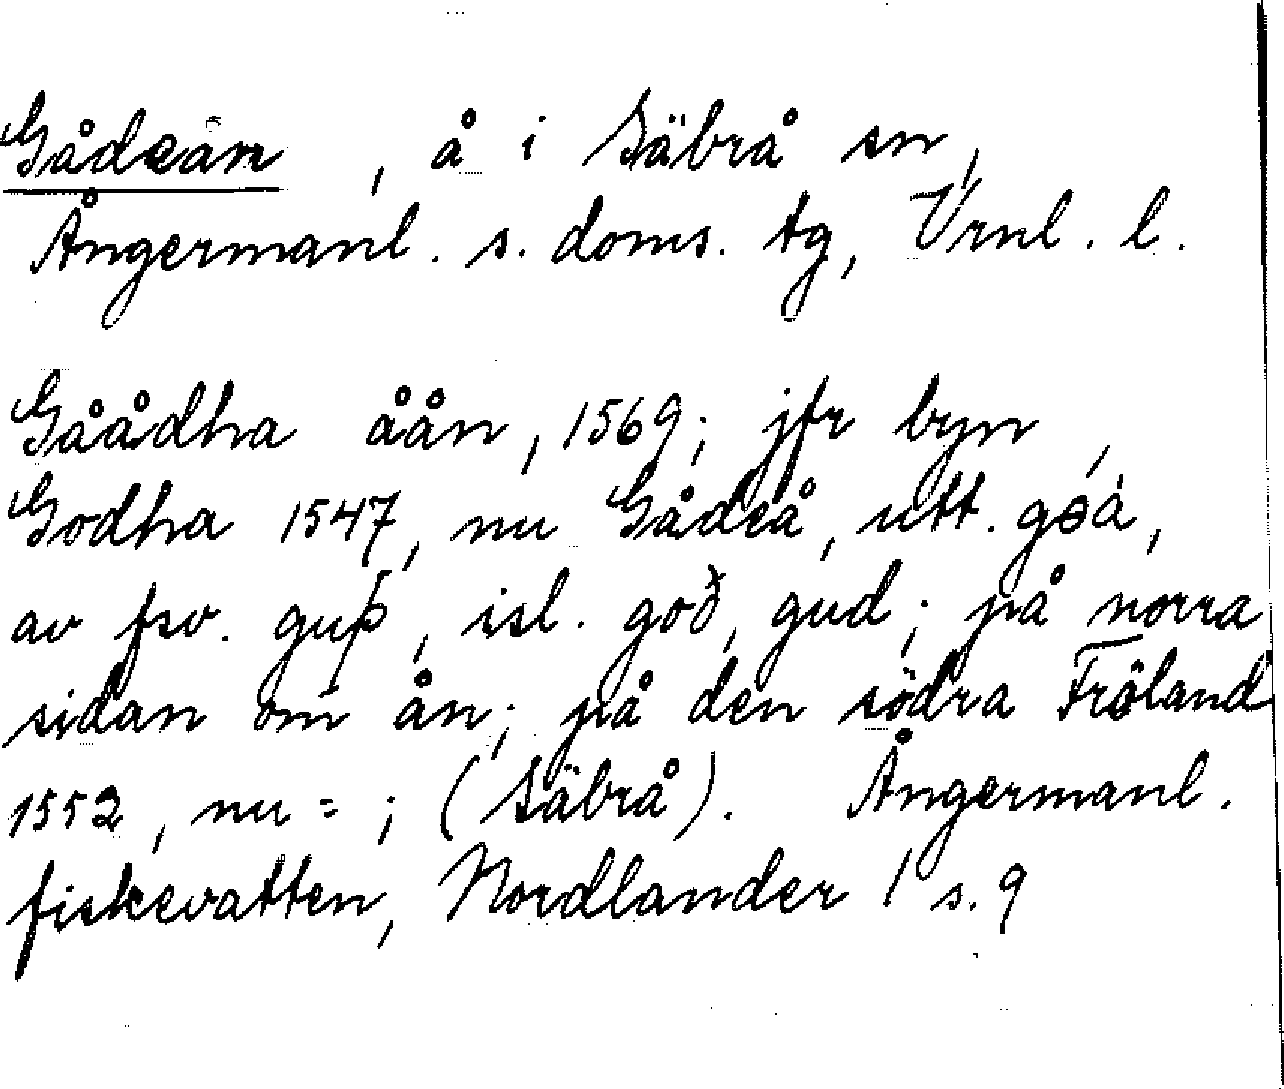 Gådeån , å i Säbrå sn,
Ångermanl. s. doms. tg, Vrnl. l.
Gåådha åån, 1569; jfr byn,
Godha 1547, nu Gådeå, utt. gɷ́å̀,
av fsv. guþ, isl. goð, gud; på norra
sidan om ån; på den södra Fröland
1552, nu = ; (Säbrå). Ångermanl.
fiskevatten, Nordlander 1 s. 9